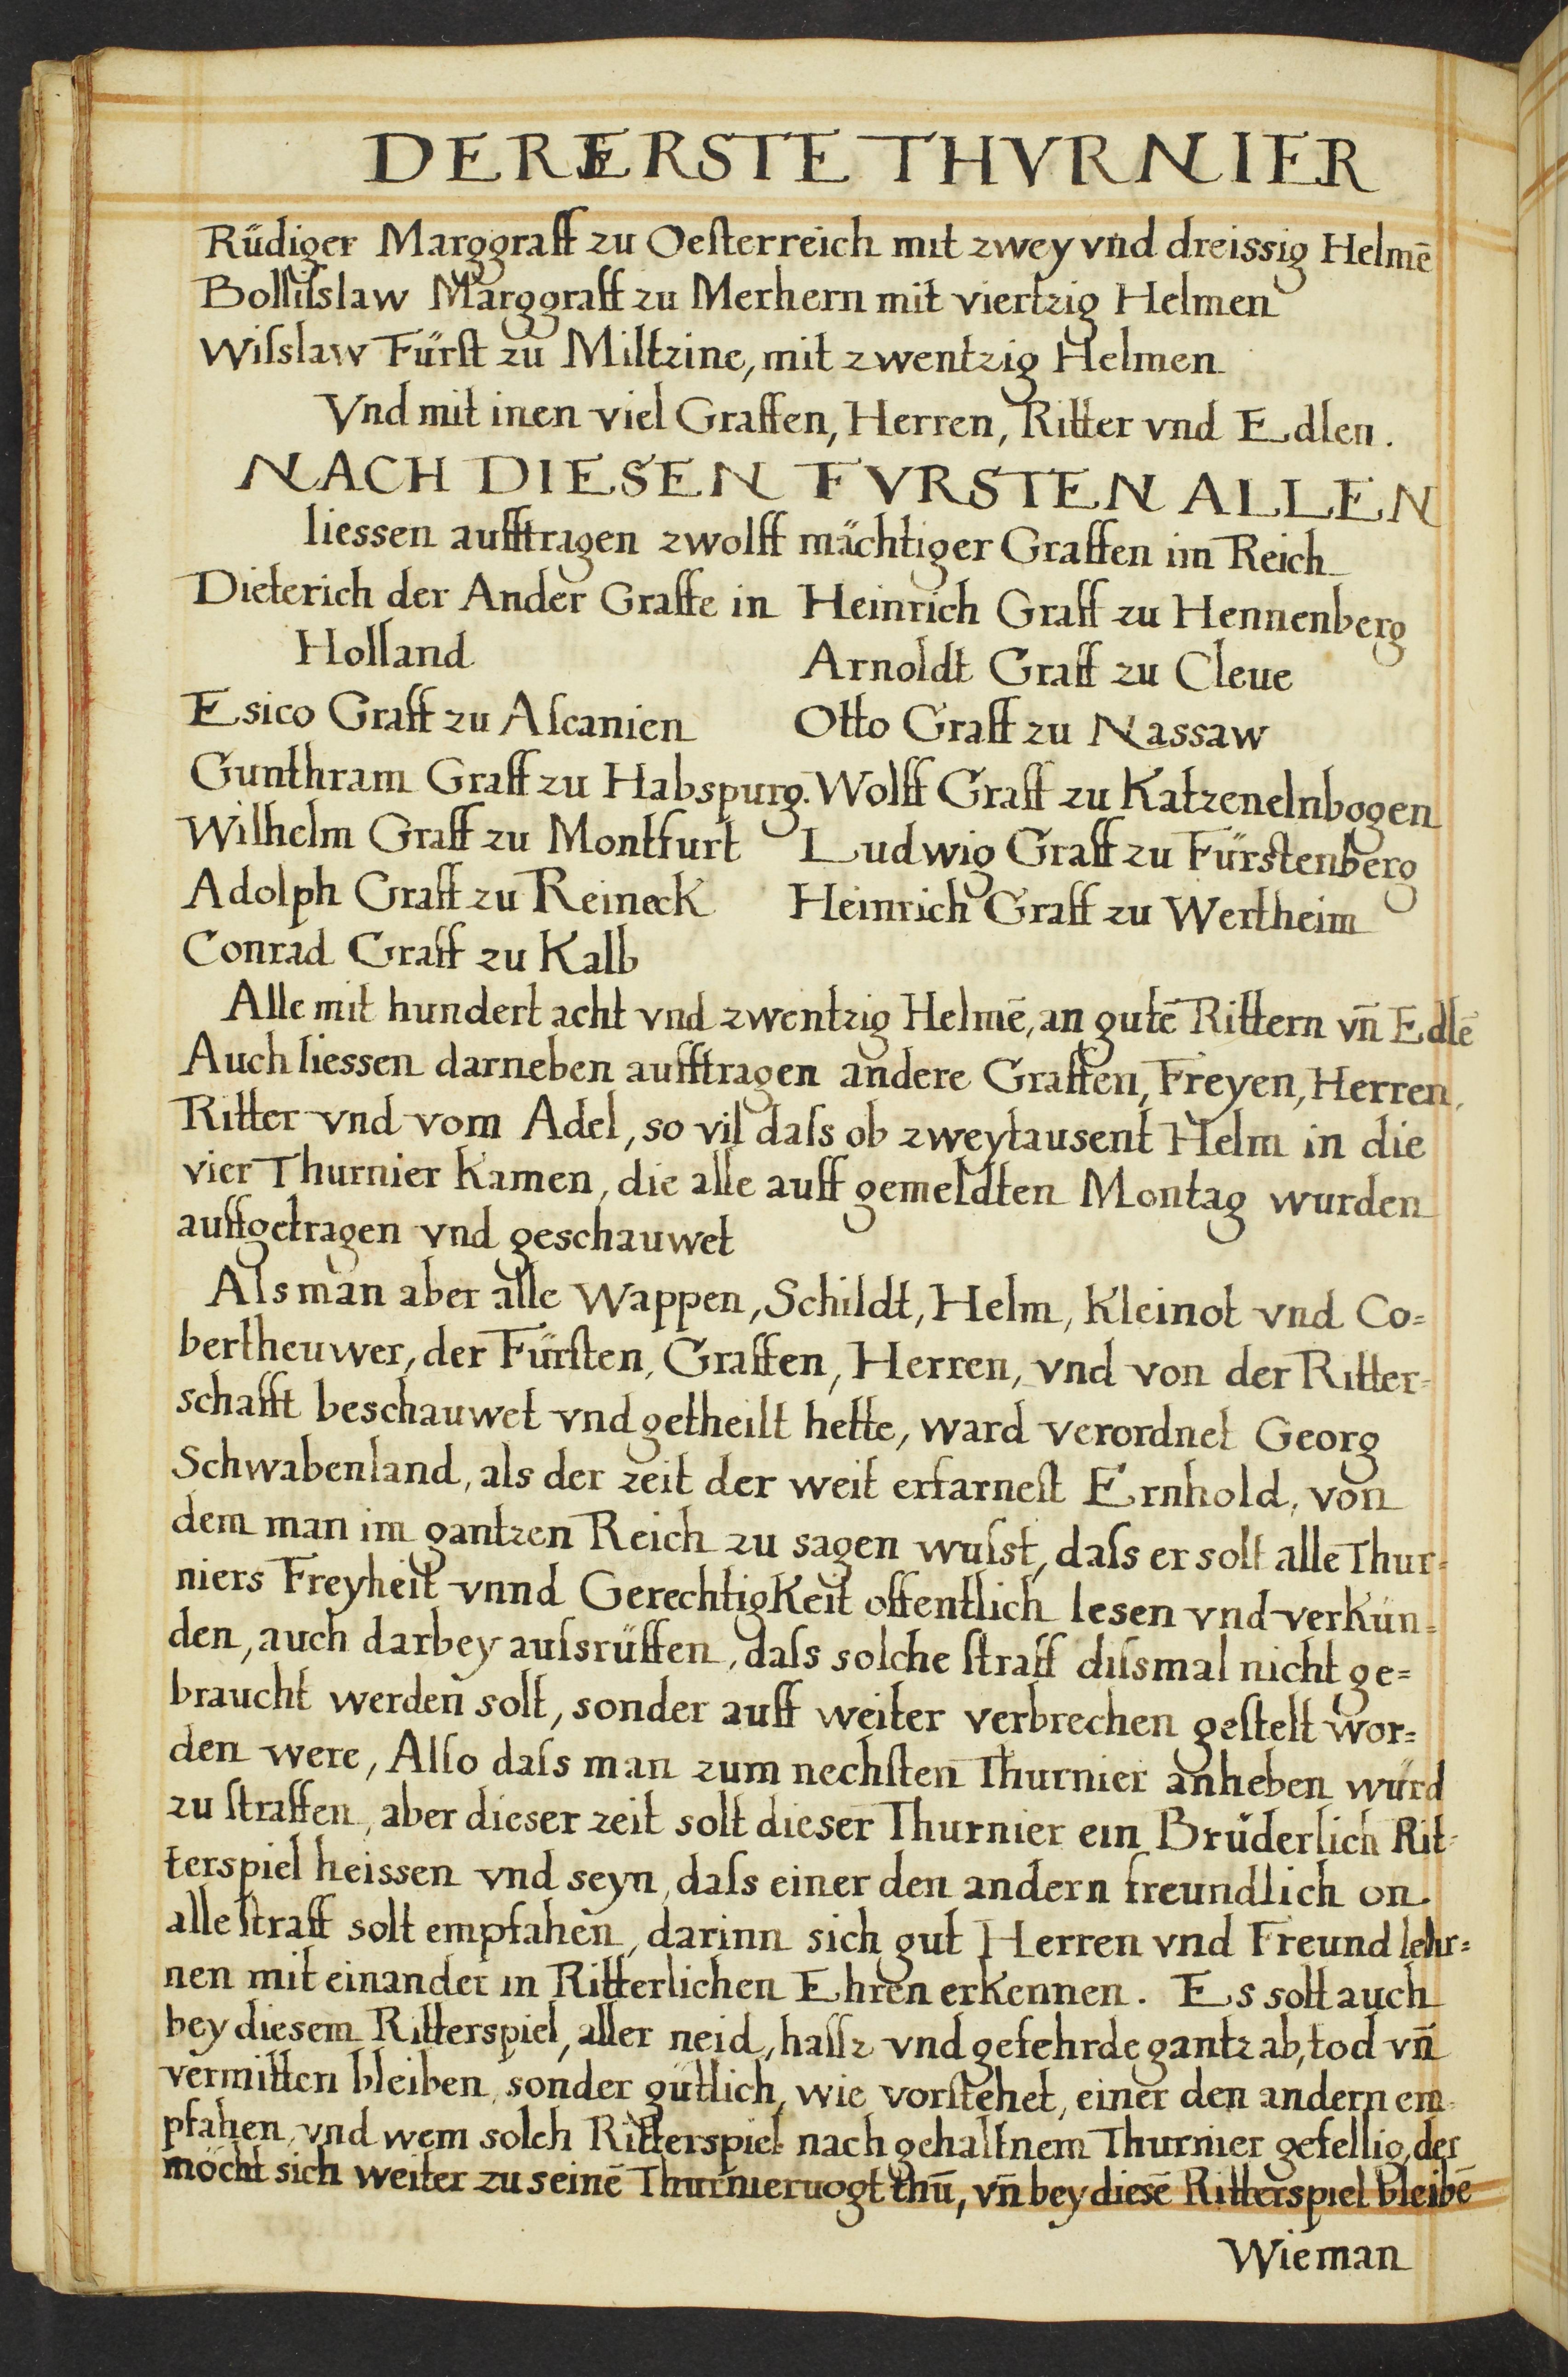 DER ERSTE THVRNIER
Rüdiger Marggraff zu Oeſterreich mit zwey vnd dreissig Helmē
Bolliſslaw Marggraff zu Merhern mit viertzig Helmen
Wiſslaw Fürſt zu Miltzine, mit zwentzig Helmen
Vnd mit inen viel Graffen, Herren, Ritter vnd Edlen.
NACH DIESEN FVRSTEN ALLEN
liessen aufftragen zwolff mächtiger Graffen im Reich
Dieterich der Ander Graffe in
Holland
Esico Graff zu Aſcanien
Gunthram Graff zu Habspurg.
Wilhelm Graff zu Montfurt
Adolph Graff zu Reineck
Conrad Graff zu Kalb
Heinrich Graff zu Hennenberg
Arnoldt Graff zu Cleue
Otto Graff zu Nassaw
Wolff Graff zu Katzenelnbogen
Ludwig Graff zu Fürſtenberg
Heinrich Graff zu Wertheim
Alle mit hundert acht vnd zwentzig Helmē, an gutē Rittern vn̄ Edlē
Auch liessen darneben aufftragen andere Graffen, Freyen, Herren,
Ritter vnd vom Adel, so vil daſs ob zweytausent Helm in die
vier Thurnier kamen, die alle auff gemeldten Montag wurden
auffgetragen vnd geschauwet
Als man aber alle Wappen, Schildt, Helm, Kleinot vnd Co=
bertheuwer, der Fürſten, Graffen, Herren, vnd von der Ritter=
schafft beschauwet vnd getheilt hette, ward verordnet Georg
Schwabenland, als der zeit der weit erfarneſt Ernhold, von
dem man im gantzen Reich zu sagen wuſst, daſs er solt alle Thur=
niers Freyheit vnnd Gerechtigkeit offentlich lesen vnd verkün=
den, auch darbey auſsrüffen, daſs solche ſtraff diſsmal nicht ge=
braucht werden solt, sonder auff weiter verbrechen geſtelt wor=
den were, Alſo daſs man zum nechſten Thurnier anheben würd
zu ſtraffen, aber dieser zeit solt dieser Thurnier ein Brüderlich Rit=
terspiel heissen vnd seyn, daſs einer den andern freundlich on
alle ſtraff solt empfahen, darinn sich gut Herren vnd Freund lehr=
nen mit einander in Ritterlichen Ehren erkennen. Es solt auch
bey diesem Ritterspiel, aller neid, haſſz vnd gefehrde gantz ab, tod vn̄
vermitten bleiben, sonder gütlich, wie vorſtehet, einer den andern em=
pfahen, vnd wem solch Ritterspiel nach gehaltnem Thurnier gefellig, der
möcht sich weiter zu seinē Thurnieruogt thū, vn̄ bey diesē Ritterspiel bleibē
Wie man